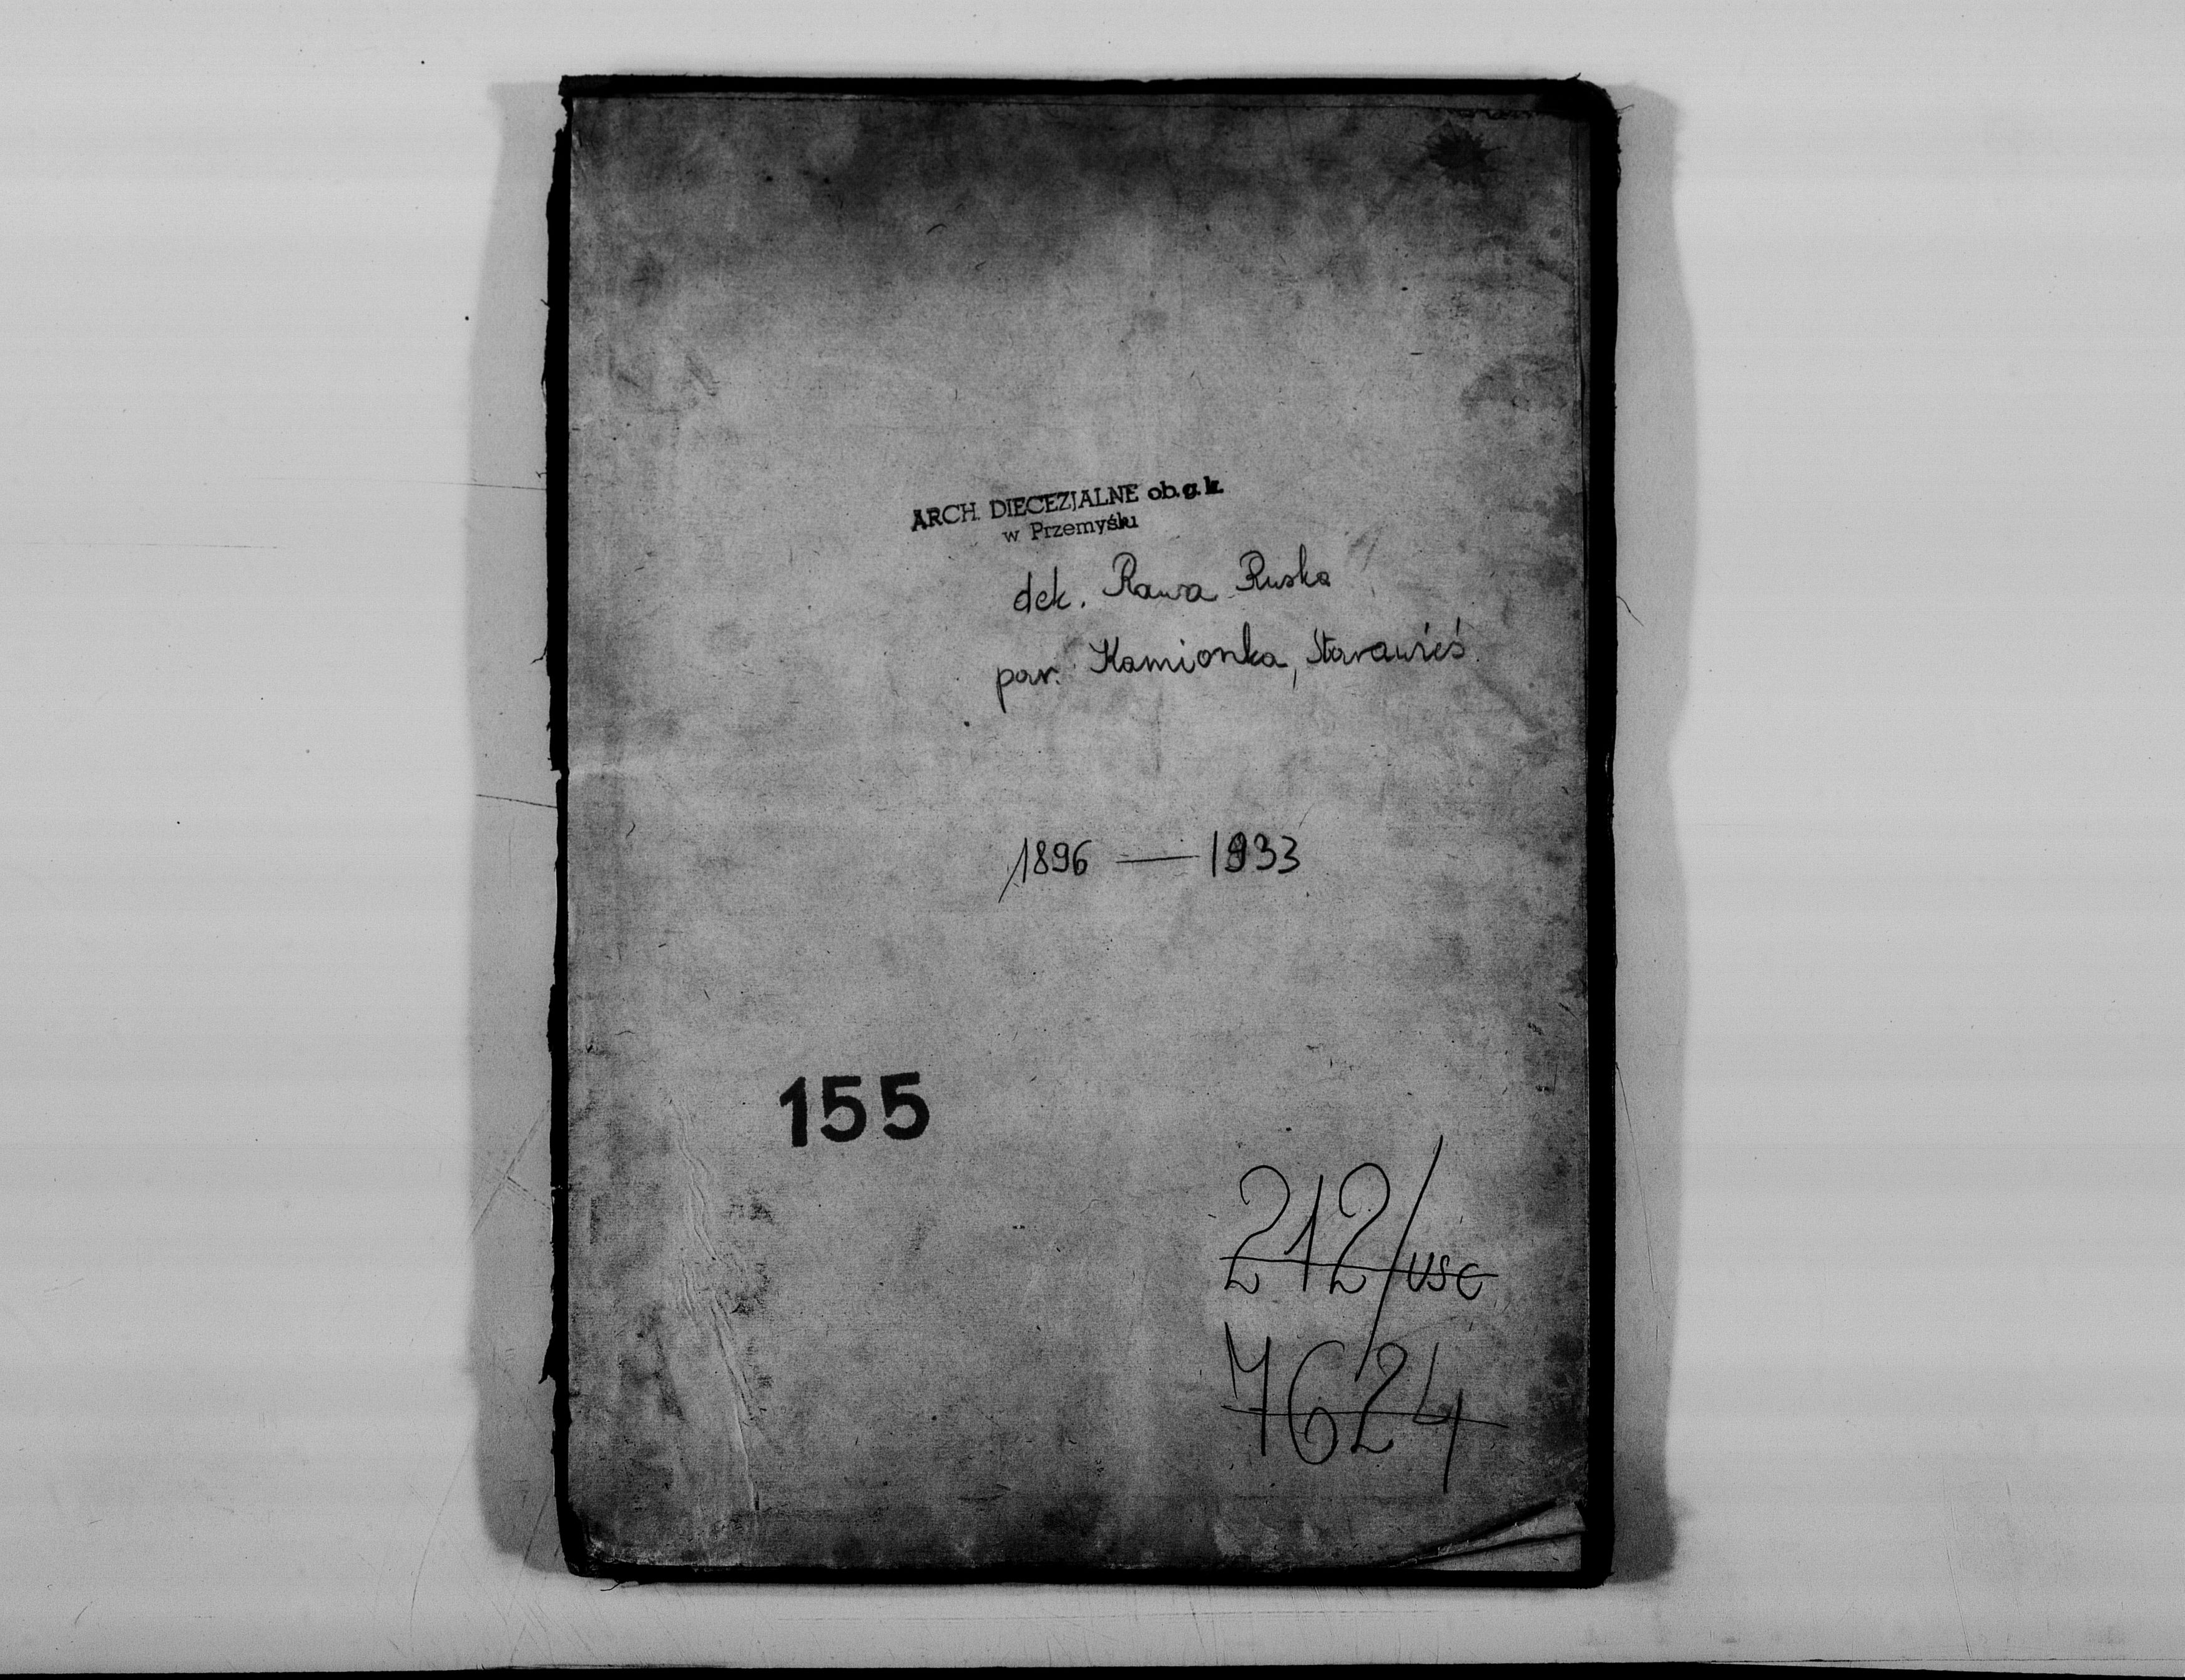 ARCH. DIECEZJALNE ob. g. k.
w Przemyślu
dek. Rawa Ruska
par. Kamionka, Starawieś
1896 — 1933
155
212/USC
7624